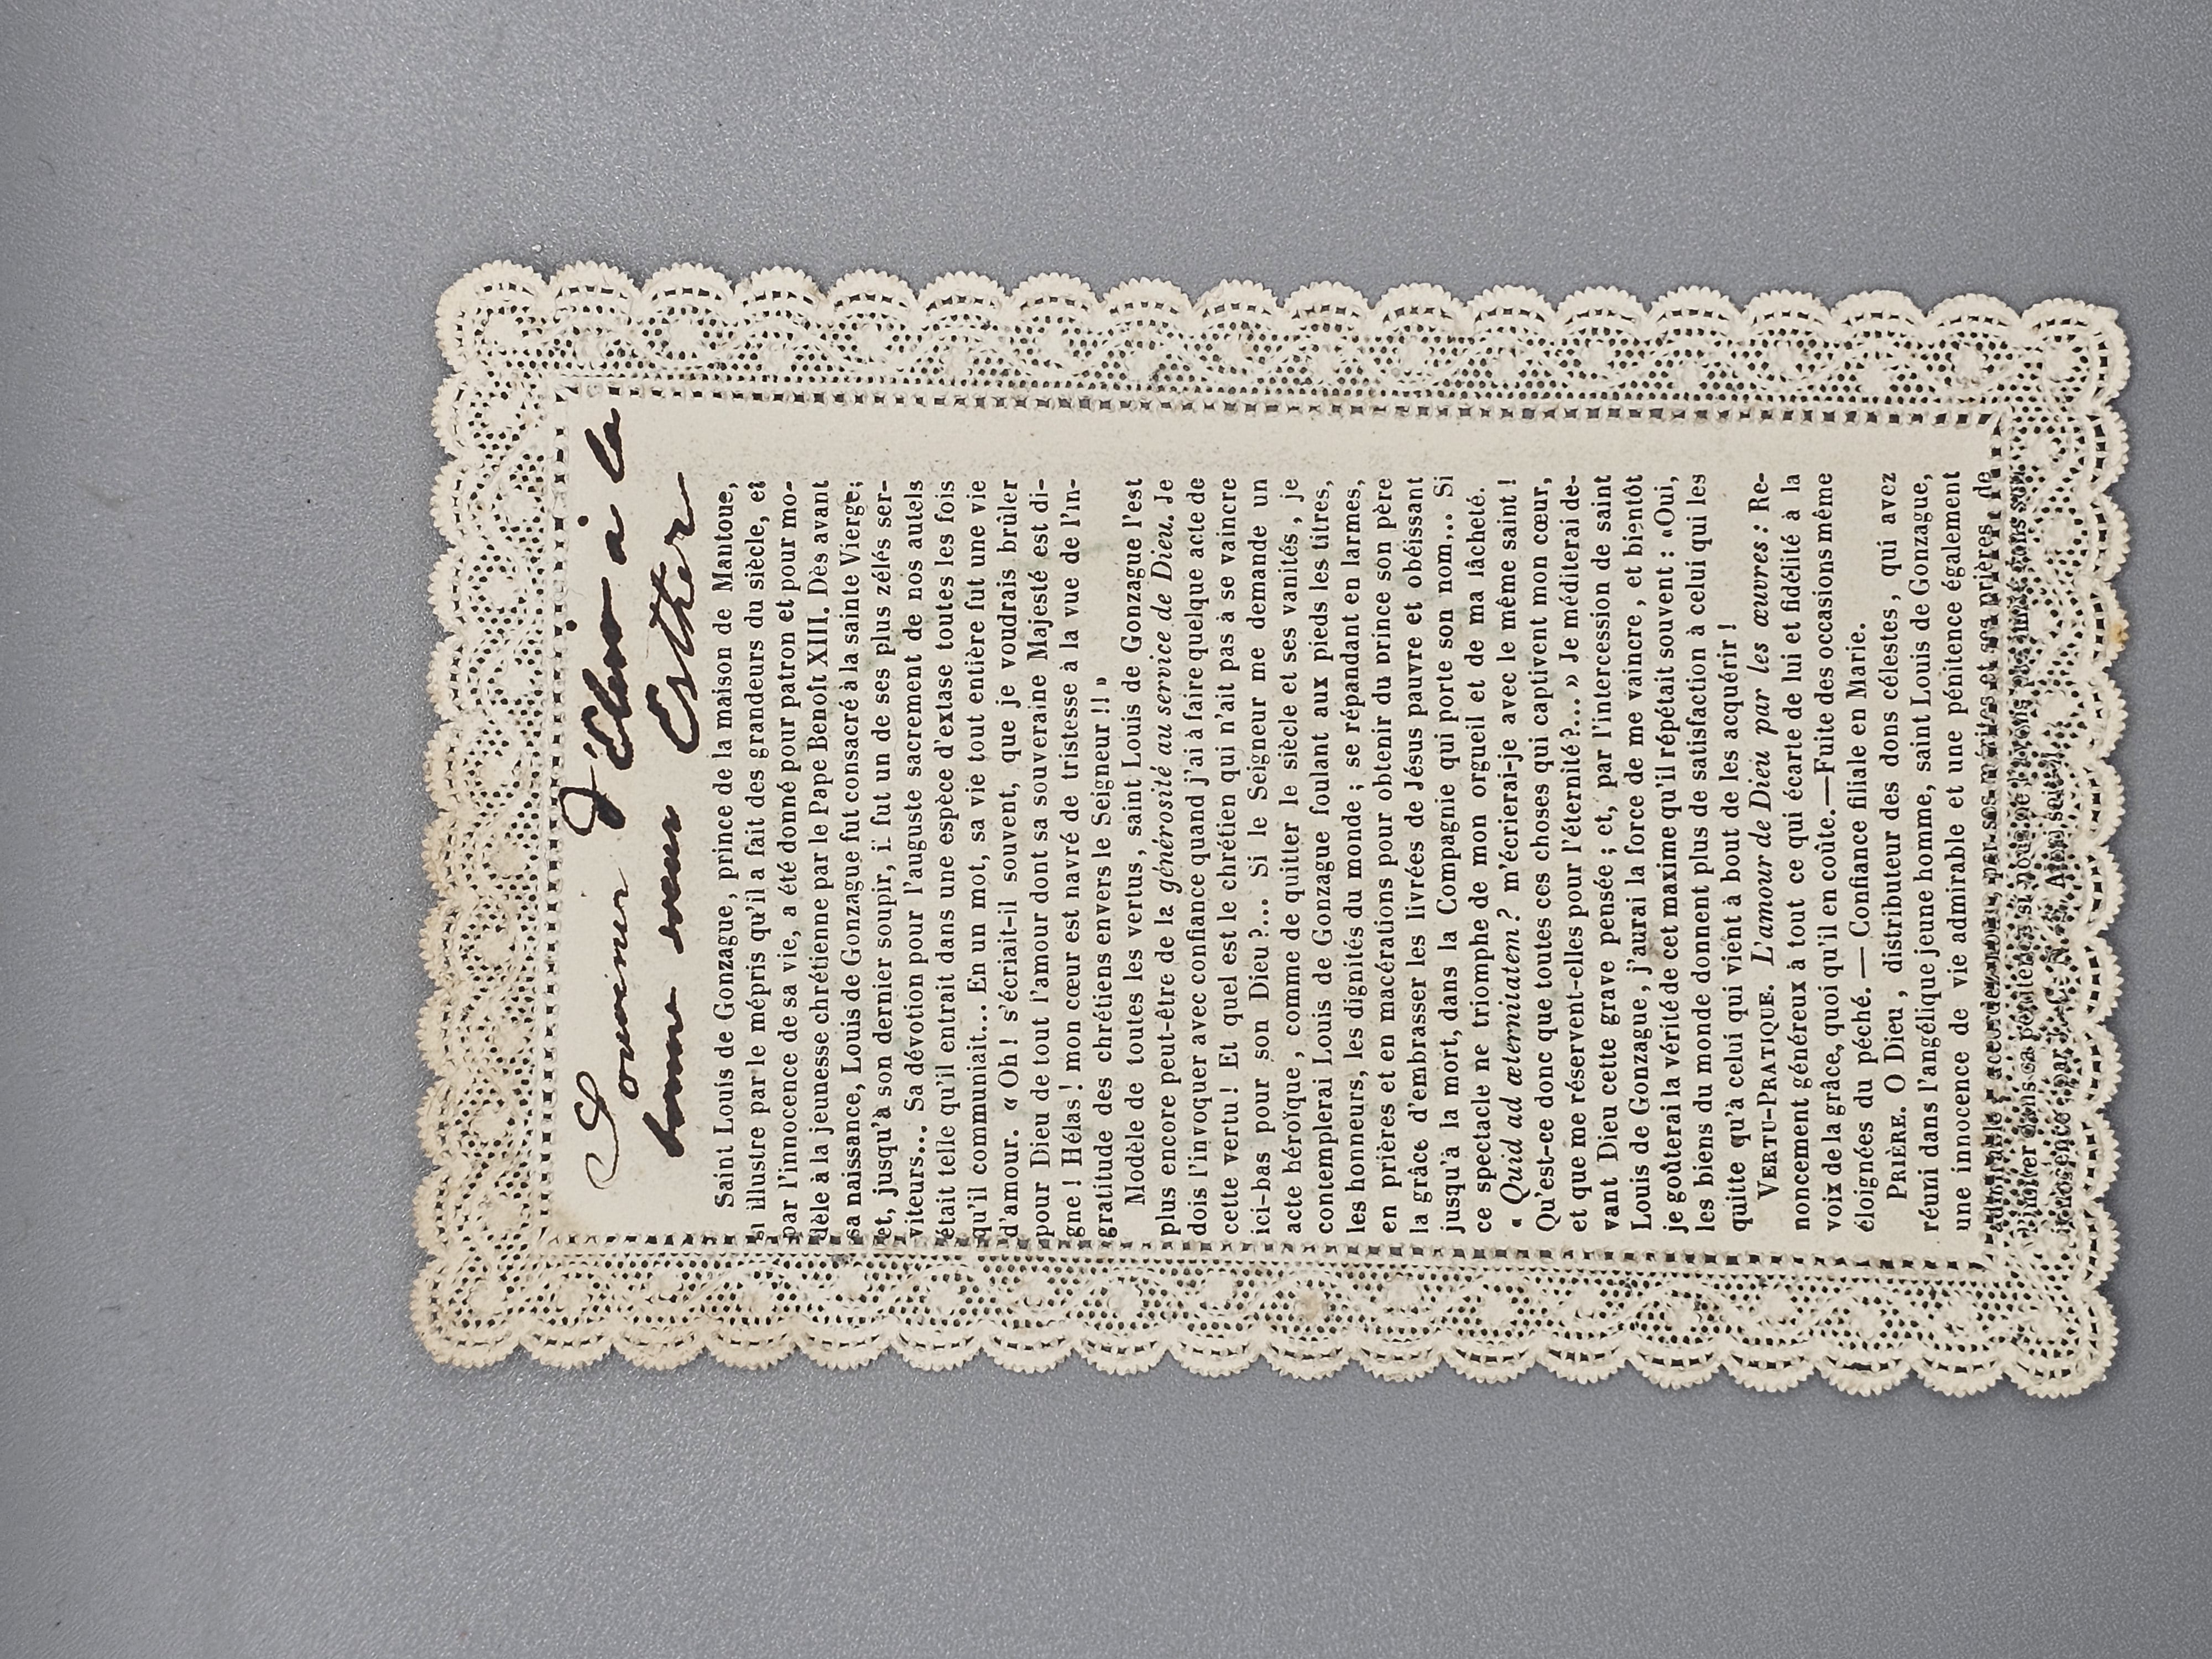 Souvenir d'Elena à la
bonne sœur Esther
Saint Louis de Gonzague, prince de la maison de Mantoue,
si illustre par le mépris qu'il a fait des grandeurs du siècle, et
par l'innocence de sa vie, a été donné pour patron et pour mo-
dèle à la jeunesse chrétienne par le Pape Benoît XIII. Dès avant
sa naissance, Louis de Gonzague fut consacré à la sainte Vierge;
et, jusqu'à son dernier soupir, il fut un de ses plus zélés ser-
viteurs... Sa dévotion pour l'auguste sacrement de nos autels
était telle qu'il entrait dans une espèce d'extase toutes les fois
qu'il communiait... En un mot, sa vie tout entière fut une vie
d'amour. « Oh! s'écriait-il souvent, que je voudrais brûler
pour Dieu de tout l'amour dont sa souveraine Majesté est di-
gne! Hélas! mon cœur est navré de tristesse à la vue de l'in-
gratitude des chrétiens envers le Seigneur!! »
Modèle de toutes les vertus, saint Louis de Gonzague l'est
plus encore peut-être de la générosité au service de Dieu. Je
dois l'invoquer avec confiance quand j'ai à faire quelque acte de
cette vertu! Et quel est le chrétien qui n'ait pas à se vaincre
ici-bas pour son Dieu?... Si le Seigneur me demande un
acte héroïque, comme de quitter le siècle et ses vanités, je
contemplerai Louis de Gonzague foulant aux pieds les titres,
les honneurs, les dignités du monde; se répandant en larmes,
en prières et en macérations pour obtenir du prince son père
la grâce d'embrasser les livrées de Jésus pauvre et obéissant
jusqu'à la mort, dans la Compagnie qui porte son nom... Si
ce spectacle ne triomphe de mon orgueil et de ma lâcheté.
« Quid ad æternitatem? m'écrierai-je avec le même saint!
Qu'est-ce donc que toutes ces choses qui captivent mon cœur,
et que me réservent-elles pour l'éternité?... » Je méditerai de-
vant Dieu cette grave pensée; et, par l'intercession de saint
Louis de Gonzague, j'aurai la force de me vaincre, et bientôt
je goûterai la vérité de cet maxime qu'il répétait souvent: «Oui,
les biens du monde donnent plus de satisfaction à celui qui les
quitte qu'à celui qui vient à bout de les acquérir!
VERTU-PRATIQUE. L'amour de Dieu par les œuvres: Re-
noncement généreux à tout ce qui écarte de lui et fidélité à la
voix de la grâce, quoi qu'il en coûte.—Fuite des occasions même
éloignées du péché. — Confiance filiale en Marie.
PRIÈRE. O Dieu, distributeur des dons célestes, qui avez
réuni dans l'angélique jeune homme, saint Louis de Gonzague,
une innocence de vie admirable et une pénitence également
admirable accordez-nous par ses mérites et ses prières de
l'imiter dans sa pénitence si nous ne l'avons pas imité dans son
innocence par J.-C. N.-S. Ainsi soit-il.